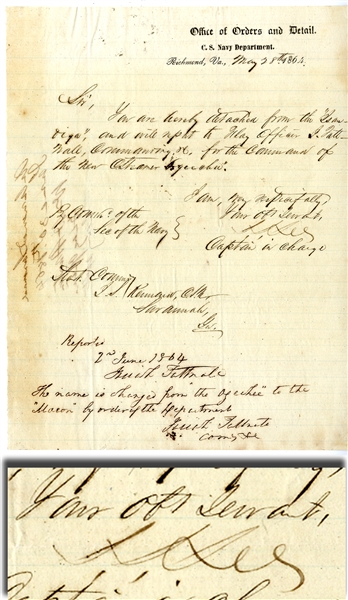 Office of Orders and Detail.
C. S. Navy Department.
Richmond, Va., May 28th 1864
Sir,
You are hereby detached from the "Ison-
diga", and will report to Flag Officer J. Tatt-
nall, Commanding, &c. for the Command of
the New Steamer Ogeechee.
I am, very respectfully,
Your obt Servant,
S S Lee
Captain in charge
By Comd. of the
Sec of the Navy
Lieut. Comdg
J. S. Kennard, CSN
Savannah,
Ga.
Reported
2nd June 1864
Josiah Tattnall
The name is changed from the "Ogeechee" to the
"Macon" by order of the Department
Josiah Tattnall
Comdg &c
Your obt Servant,
S S Lee